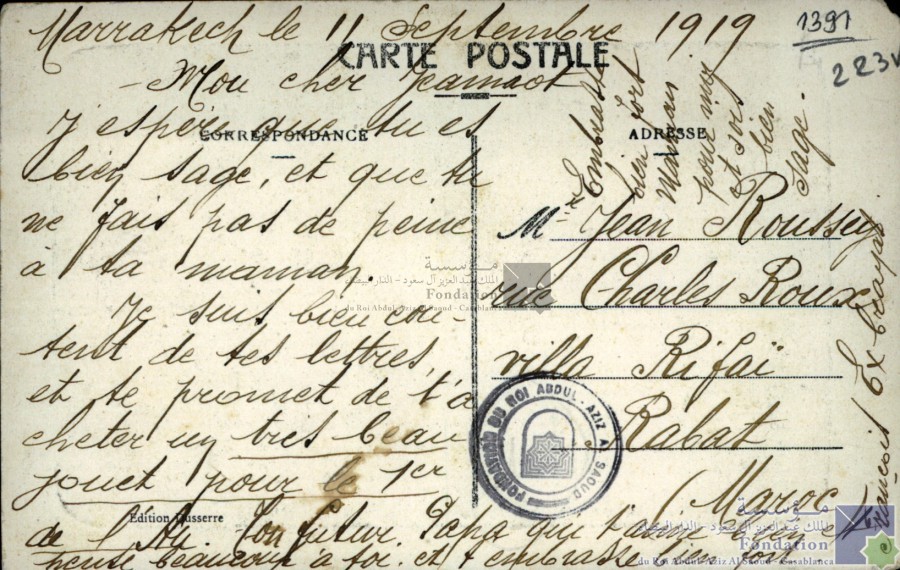 Marrakech le 11 Septembre 1919
1391
223v
CARTE POSTALE
- Mon cher Jeannot
CORRESPONDANCE
ADRESSE
J'espère que tu es
bien sage, et que tu
ne fais pas de peine
à ta maman
Je suis bien con-
tent de tes lettres,
et te promet de t'a
cheter un très beau
jouet pour le 1er
de l'An. Ton futur Papa qui t'aime
pense beaucoup à toi. et t'embrasse bien
Embrasse
bien fort
maman
pour moi
et sois
bien
sage.
Mr Jean Roussey
rue Charles Roux
villa Rifaï
Rabat
(Maroc)
Edition Dusserre
FONDATION DU ROI ABDUL-AZIZ AL SAOUD
مؤسسة
الملك عبد العزيز آل سعود - الدار البيضاء
Fondation
du Roi Abdul-Aziz Al Saoud - Casablanca
مؤسسة
الملك عبد العزيز آل سعود - الدار البيضاء
Fondation
du Roi Abdul-Aziz Al Saoud - Casablanca